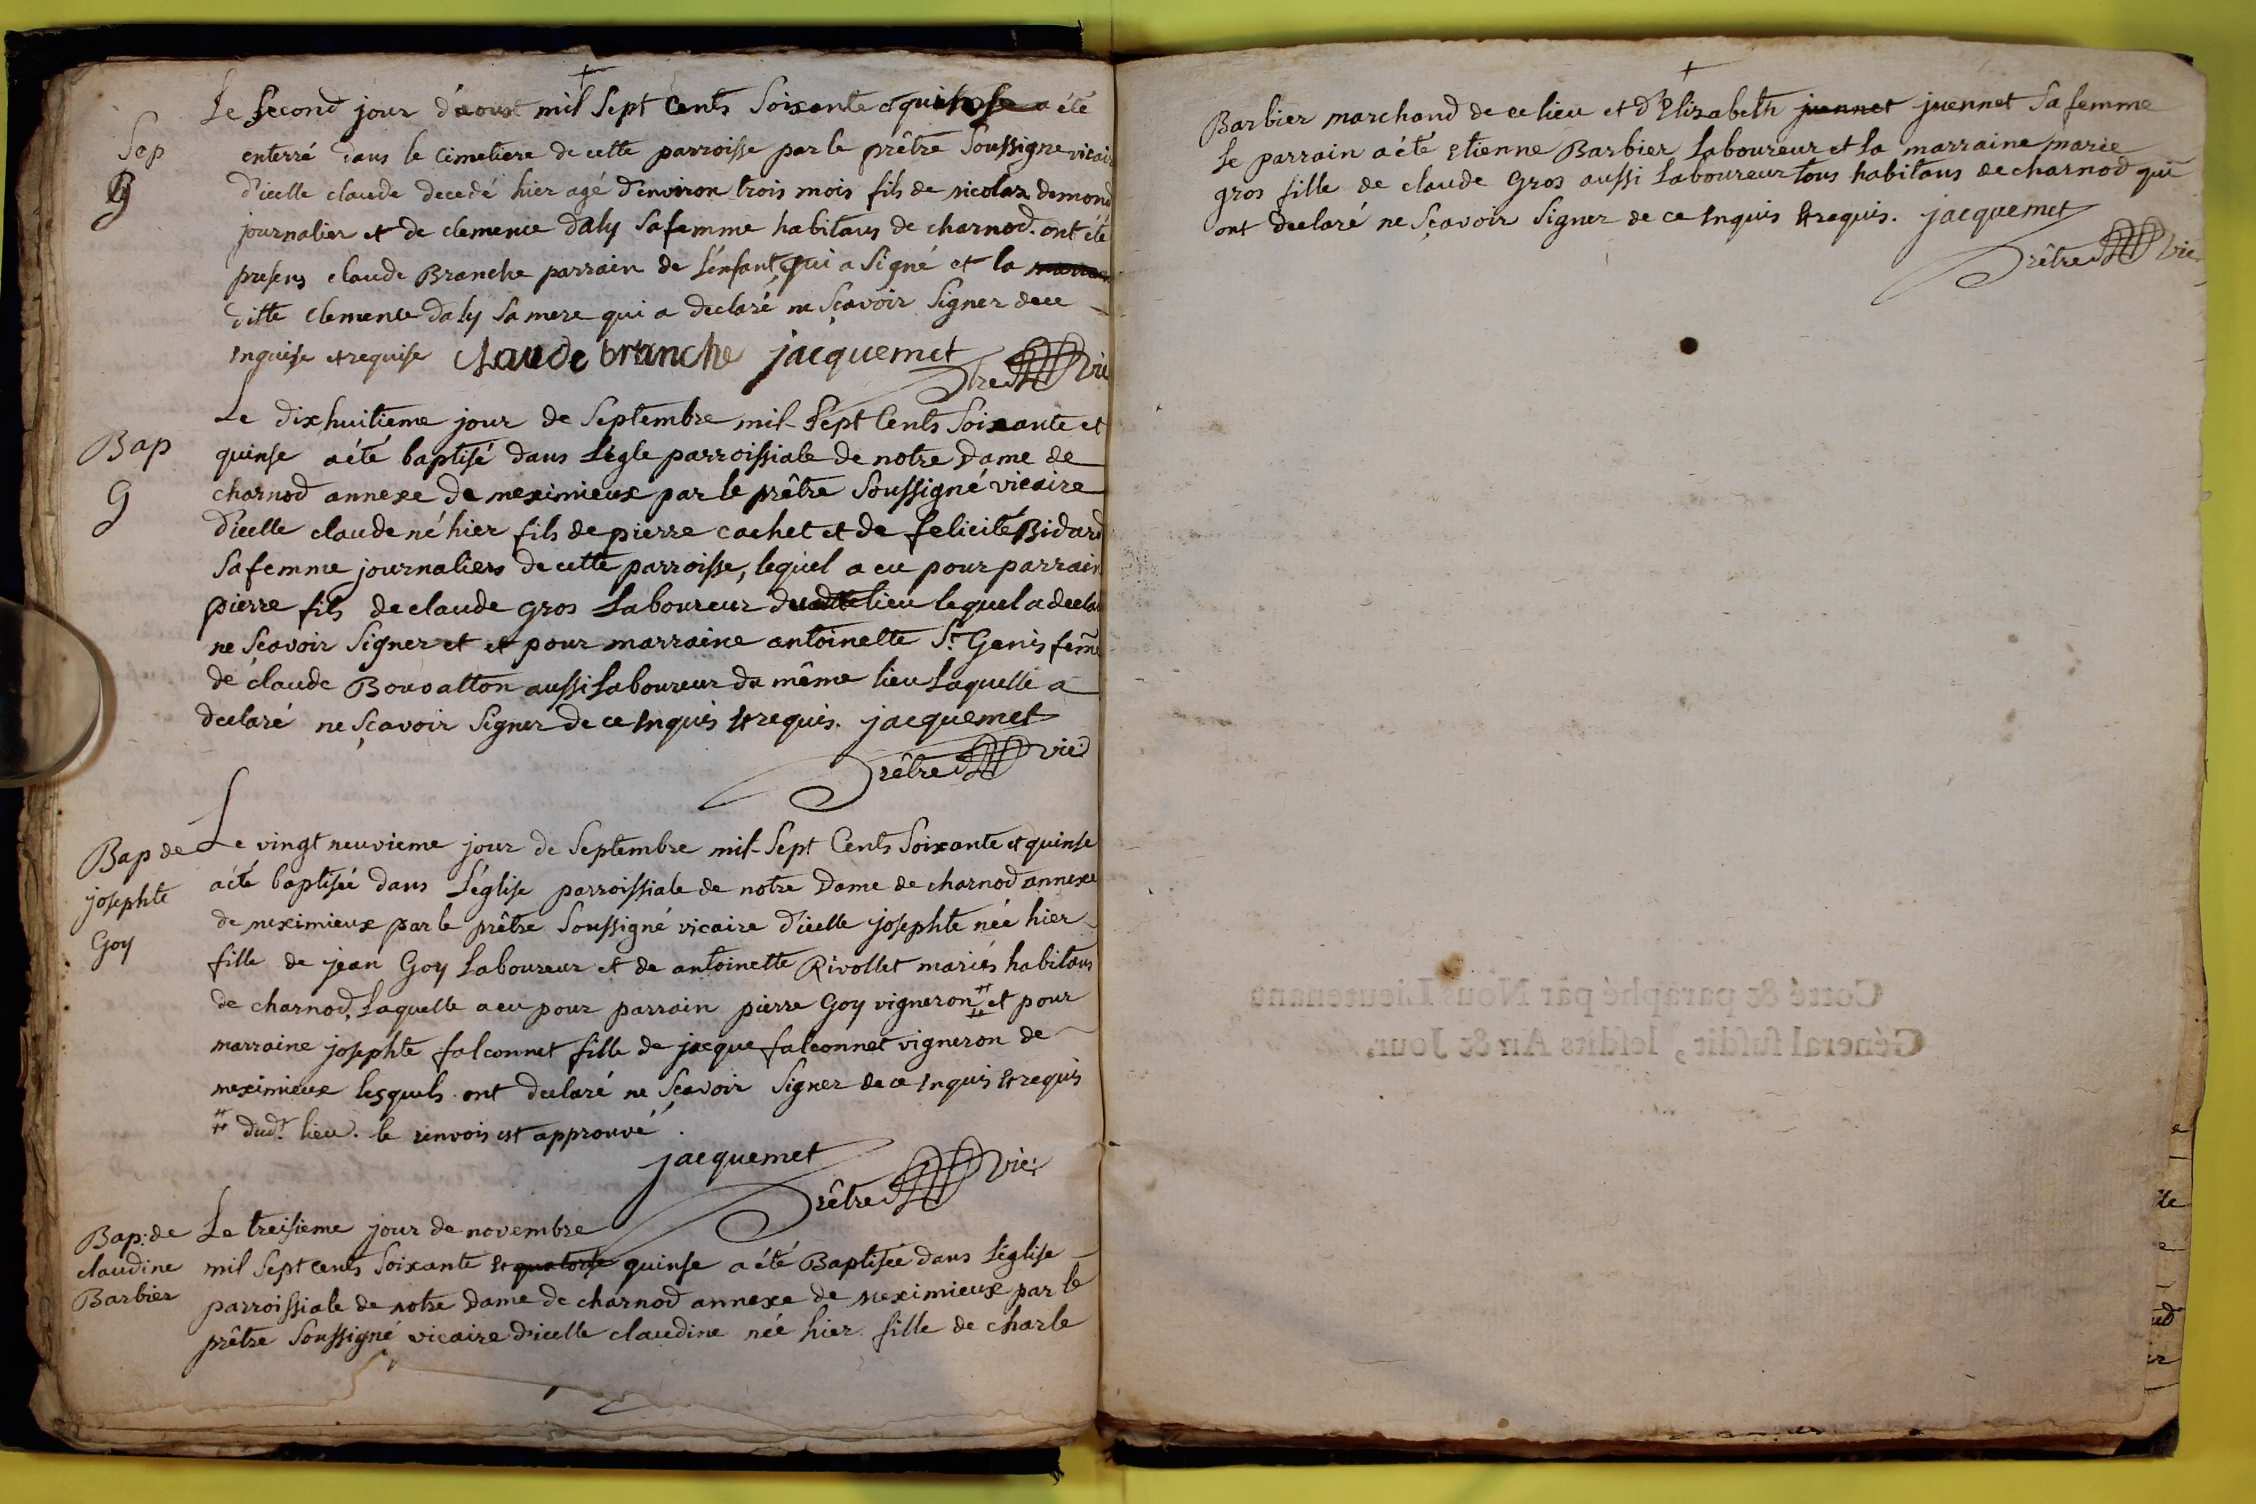 Sep
G
Le second jour d'aoust mil sept cents soixante et quinse a été
enterré dans le cimetiere de cette parroisse par le prêtre soussigné vicaire
d'icelle claude decedé hier agé d'environ trois mois fils de nicolas demond
journalier et de clemence daly sa femme habitans de charnod. ont été
presens claude Branche parrain de l'enfant, qui a signé et la
ditte clemence daly sa mere qui a declaré ne sçavoir signer de ce
inquise et requise claude branche jacquemet
ptre vic
Bap
G
Le dixhuitieme jour de septembre mil sept cents soixante et
quinse a été baptisé dans l'egle parroissiale de notre dame de
charnod annexe de meximieux par le prêtre soussigné vicaire
d'icelle claude né hier fils de pierre cachet et de felicité Bidard
sa femme journaliers de cette parroisse, lequel a eu pour parrain
pierre fils de claude gros laboureur dudit lieu lequel a declaré
ne sçavoir signer et et pour marraine antoinette St. Genis femme
de claude Bouvatton aussi laboureur du même lieu laquelle a
declaré ne sçavoir signer de ce inquis et requis. jacquemet
prêtre vic
Bap de
josephte
Goy
Le vingt neuvieme jour de septembre mil sept cents soixante et quinse
a été baptisée dans l'église parroissiale de notre dame de charnod annexe
de meximieux par le prêtre soussigné vicaire d'icelle josephte née hier
fille de jean Goy laboureur et de antoinette Rivollet mariés habitans
de charnod, laquelle a eu pour parrain pierre Goy vigneron # et pour
marraine josephte falconnet fille de jacque falconnet vigneron de
meximieux lesquels ont declaré ne sçavoir signer de ce inquis et requis
# dudt. lieu. le renvois est approuvé.
jacquemet
prêtre vic:
Bap: de
claudine
Barbier
Le treisieme jour de novembre
mil sept cents soixante et quatorse quinse a été Baptisée dans l'église
parroissiale de notre dame de charnod annexe de meximieux par le
prêtre soussigné vicaire d'icelle claudine née hier fille de charle
Barbier marchand de ce lieu et d'Elizabeth juennet juennet sa femme
le parrain a été etienne Barbier laboureur et la marraine marie
gros fille de claude Gros aussi laboureur tous habitans de charnod qui
ont declaré ne sçavoir signer de ce inquis et requis. jacquemet
prêtre vic
Cotté & paraphé par Nous Lieutenant
Général susdit, lesdits An & Jour.